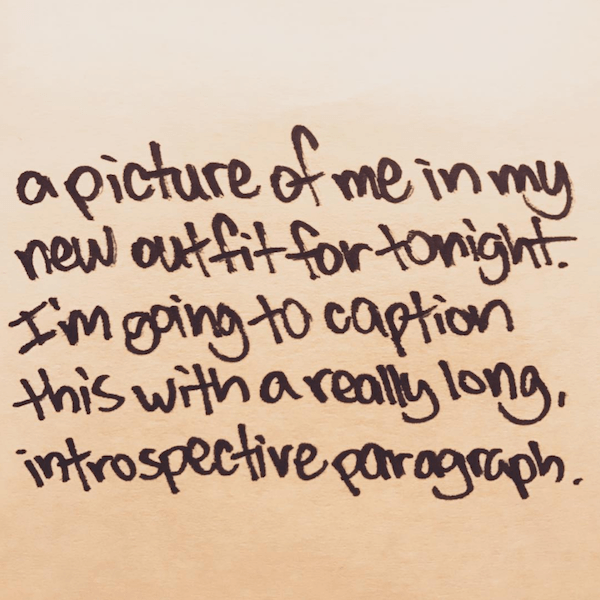 a picture of me in my
new outfit for tonight.
I'm going to caption
this with a really long,
introspective paragraph.